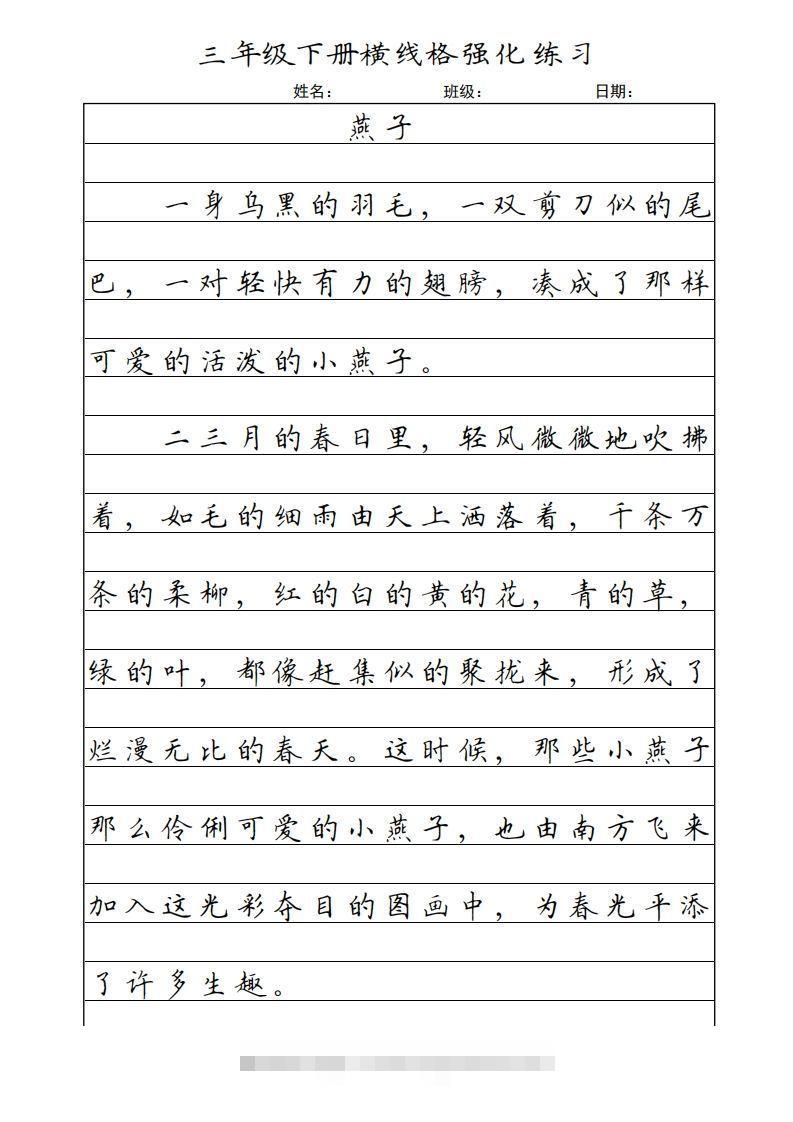 三年级下册横线格强化练习
姓名： 班级： 日期：
燕子
一身乌黑的羽毛，一双剪刀似的尾
巴，一对轻快有力的翅膀，凑成了那样
可爱的活泼的小燕子。
二三月的春日里，轻风微微地吹拂
着，如毛的细雨由天上洒落着，千条万
条的柔柳，红的白的黄的花，青的草，
绿的叶，都像赶集似的聚拢来，形成了
烂漫无比的春天。这时候，那些小燕子
那么伶俐可爱的小燕子，也由南方飞来
加入这光彩夺目的图画中，为春光平添
了许多生趣。